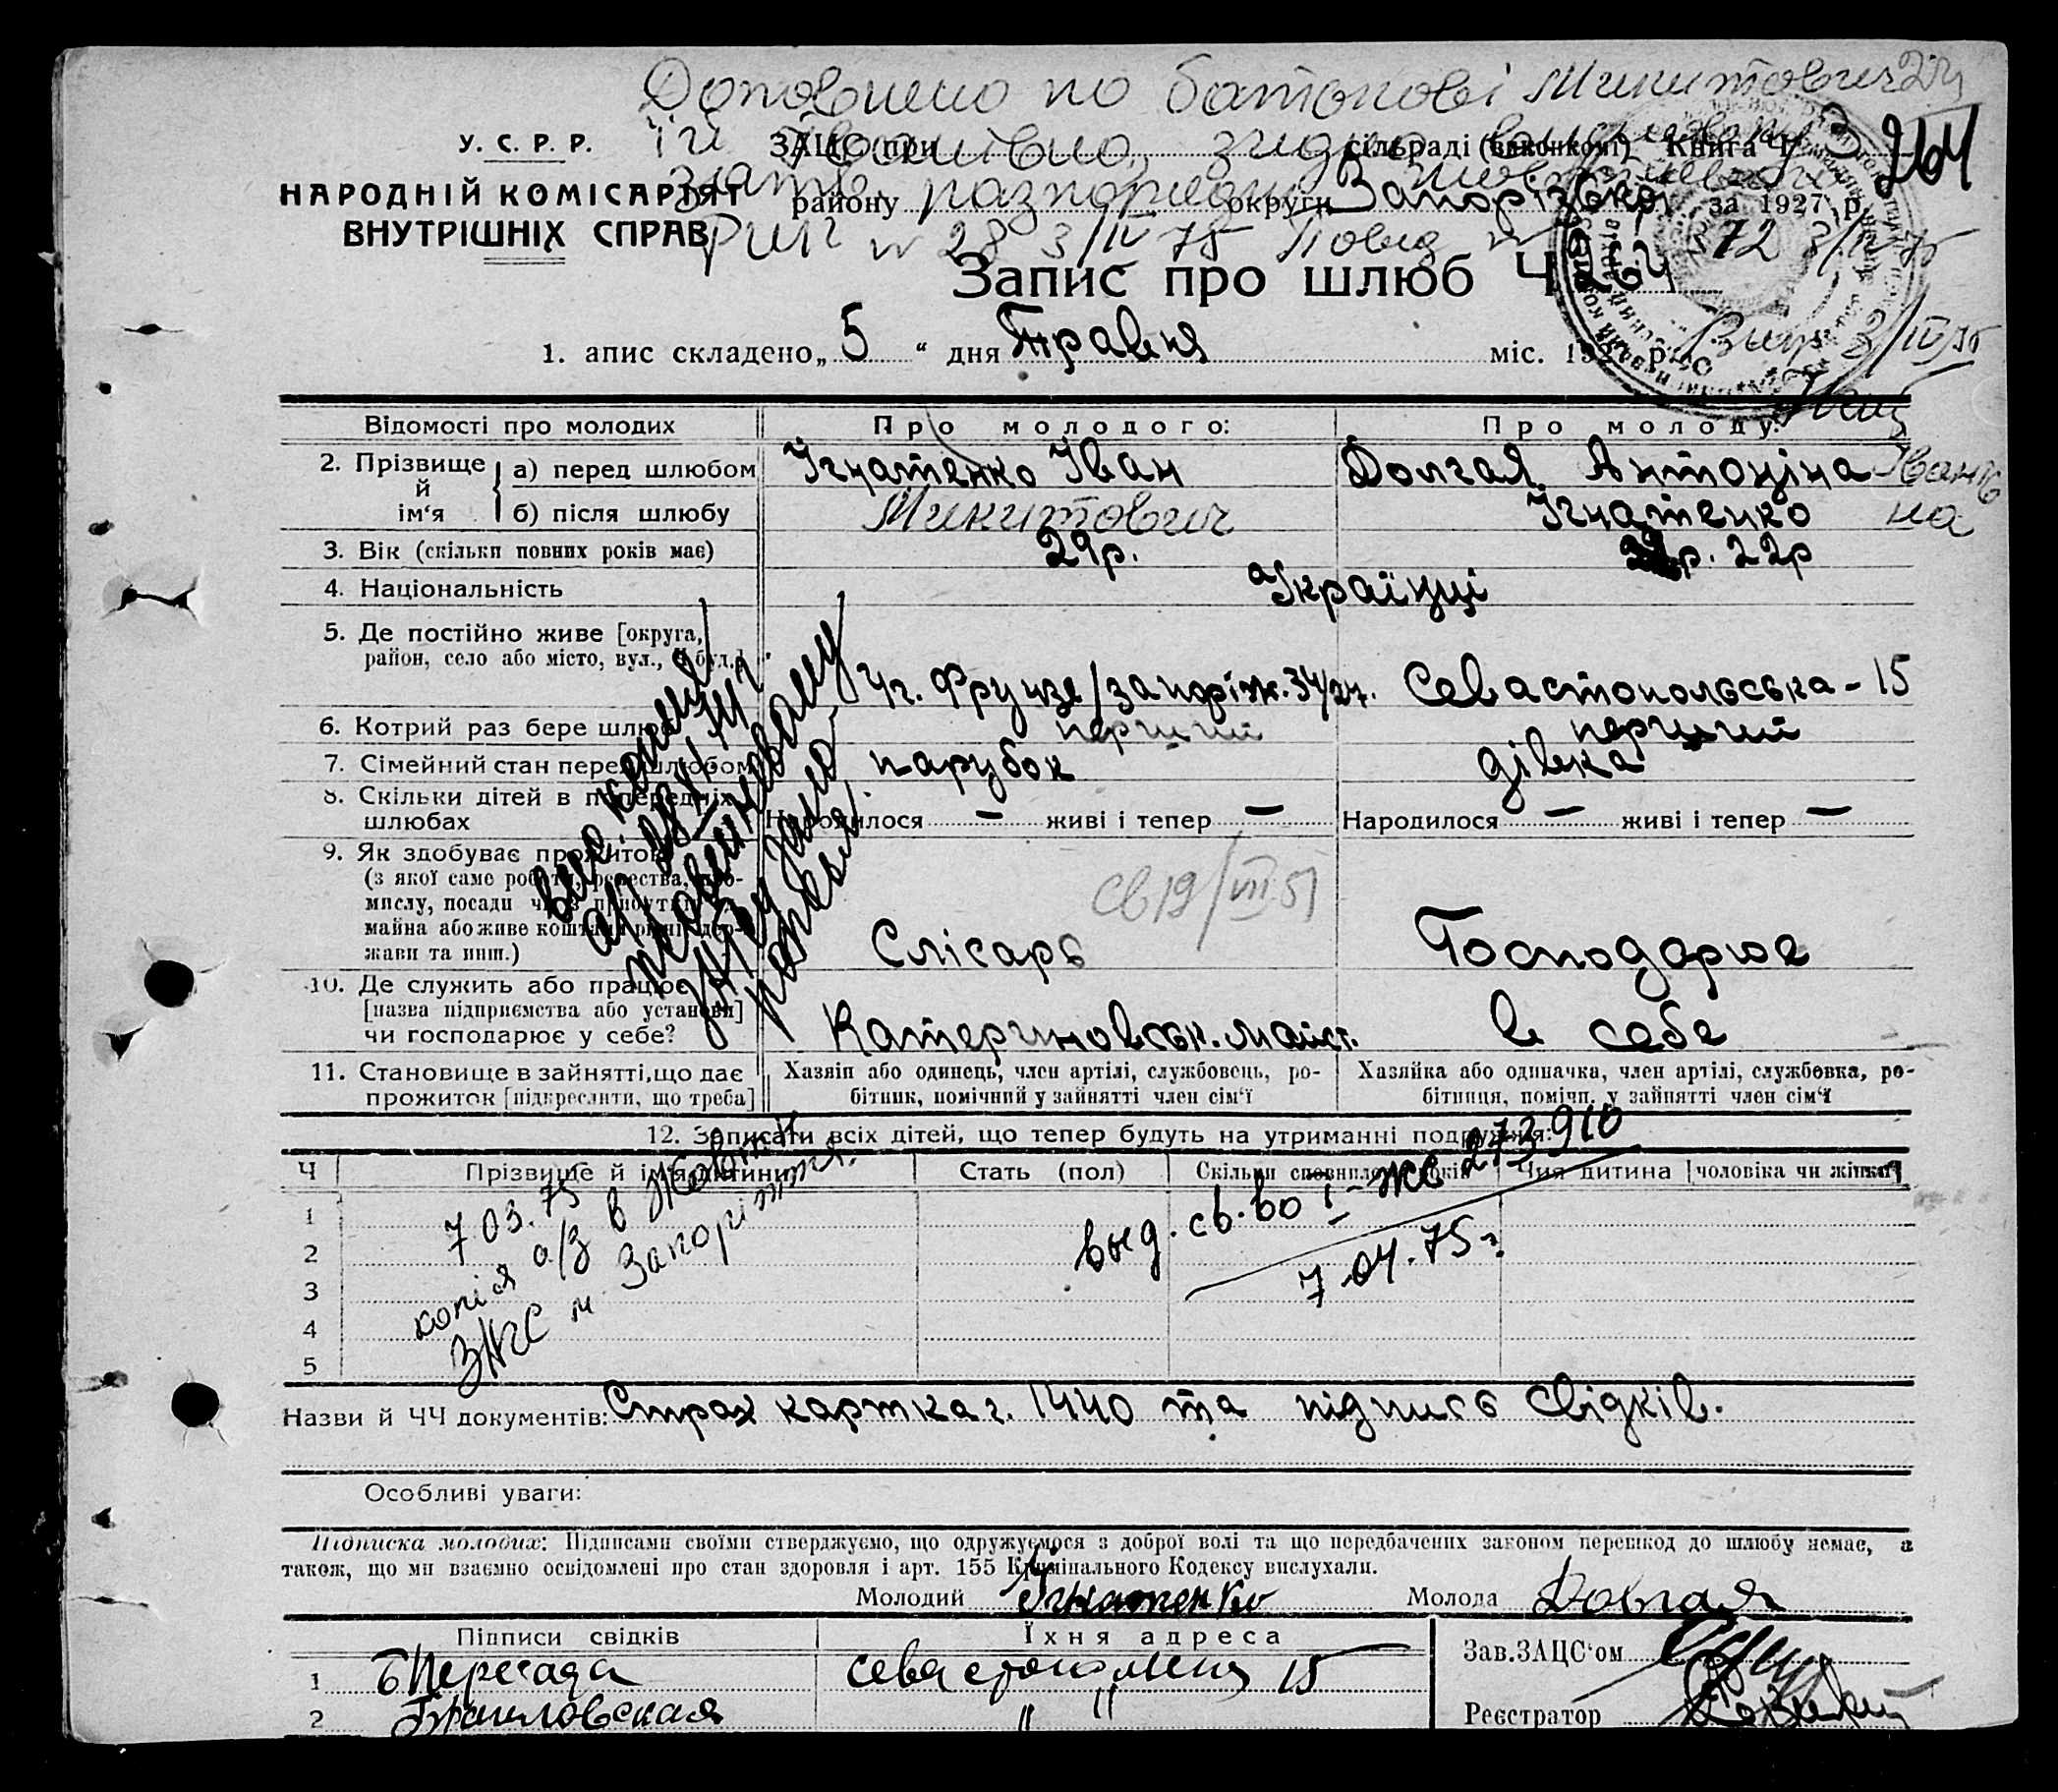 Доповнено по батькові Микитович
У. С. Р. Р.
її Іванівна, згідно
ЗАЦС при сільраді (виконкомі) Книга Ч 3 264
НАРОДНІЙ КОМІСАРІЯТ
району округи Запорізької за 1927 р.
ВНУТРІШНІХ СПРАВ
№ 28 3/IV 75 72 3/IV-75
Запис про шлюб Ч 264
1. апис складено „ 5 “ дня Травня міс. 192 р.
3/IV 75
Відомості про молодих Про молодого: Про молоду:
2. Прізвище й ім‘я а) перед шлюбом Ігнатенко Іван Долгая Антоніна Іванів
б) після шлюбу Микитович Ігнатенко на
3. Вік (скільки повних років має) 29р. р. 22р
4. Національність Українці
5. Де постійно живе [округа,
район, село або місто, вул., й буд.]
Фрунзе/запоріж. 34/27. Севастопольська - 15
6. Котрий раз бере шлюб перший перший
7. Сімейний стан перед шлюбом парубок дівка
8. Скільки дітей в попередніх
шлюбах Народилося — живі і тепер — Народилося — живі і тепер —
9. Як здобуває прожиток
(з якої саме роботи, ремества, про-
мислу, посади чи з прибутків
св 19/VII 51
майна або живе коштами рідні дер-
жави та инш.) Слісарь Господарює
10. Де служить або працює
[назва підприємства або установи]
чи господарює у себе? Катериновськ. майст. в себе
11. Становище в зайнятті, що дає Хазяїн або одинець, член артілі, службовець, ро- Хазяйка або одиначка, член артілі, службовка, ро-
прожиток [підкреслити, що треба] бітник, помічний у зайнятті член сім‘ї бітниця, помічн. у зайнятті член сім‘ї
12. Записати всіх дітей, що тепер будуть на утриманні подружжя:
Ч Прізвище й ім‘я дитини Стать (пол) Скільки сповнилося років Чия дитина [чоловіка чи жінки]
1
2
3
4
5
7 03.75
копія а/з в Жовтн
ЗАГС м Запоріжжя.
выд. св-во I-ЖС 273910
7.04.75 г.
Назви й ЧЧ документів: Страх картка г. 1440 та підпись свідків.
Особливі уваги:
Підписка молодих: Підписами своїми стверджуємо, що одружуємося з доброї волі та що передбачених законом перешкод до шлюбу немає, а
також, що ми взаємно освідомлені про стан здоровля і арт. 155 Кримінального Кодексу вислухали.
Молодий Ігнатенко Молода Довгая
Підписи свідків Їхня адреса Зав. ЗАЦС‘ом
1 Пересада 15
2 " " Реєстратор